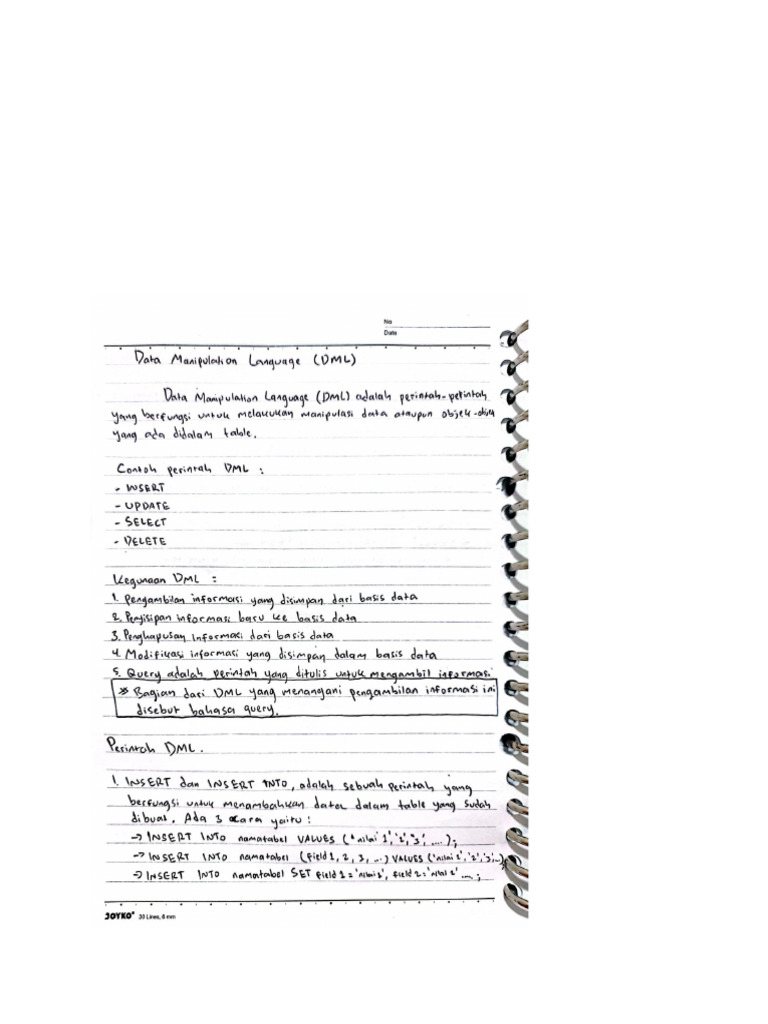 No
Date
Data Manipulation Language (DML)
Data Manipulation Language (DML) adalah perintah-perintah
yang berfungsi untuk melakukan manipulasi data ataupun objek-objek
yang ada didalam table.
Contoh perintah DML :
- INSERT
- UPDATE
- SELECT
- DELETE
Kegunaan DML :
1. Pengambilan informasi yang disimpan dari basis data
2. Penyisipan informasi baru ke basis data
3. Penghapusan informasi dari basis data
4. Modifikasi informasi yang disimpan dalam basis data
5. Query adalah perintah yang ditulis untuk mengambil informasi
* Bagian dari DML yang menangani pengambilan informasi ini
disebut bahasa query.
Perintah DML.
1. INSERT dan INSERT INTO, adalah sebuah perintah yang
berfungsi untuk menambahkan data dalam table yang sudah
dibuat. Ada 3 cara yaitu :
→ INSERT INTO namatabel VALUES ('nilai 1','2','3', ....);
→ INSERT INTO namatabel (field 1, 2, 3, ...) VALUES ('nilai 1','2','3',...);
→ INSERT INTO namatabel SET field 1 = 'nilai 1', field 2 = 'nilai 2' ....;
JOYKO 30 Lines, 6 mm